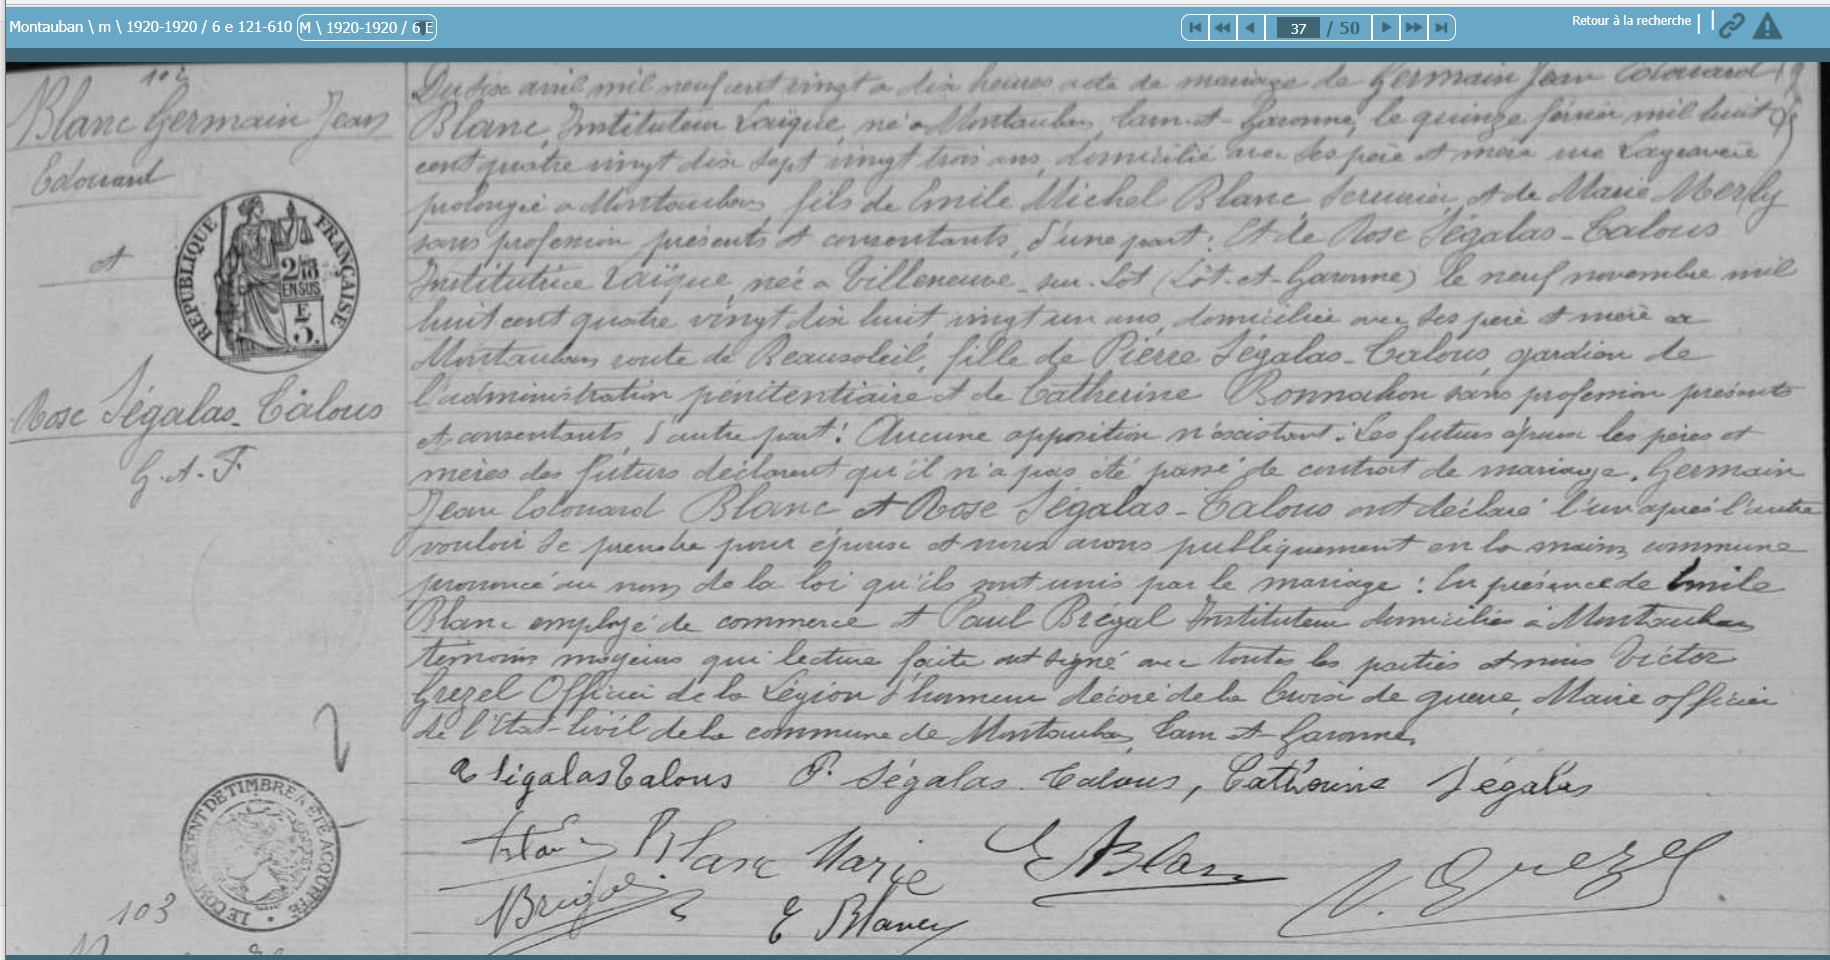 Montauban \ m \ 1920-1920 / 6 e 121-610 M \ 1920-1920 / 6 E
37 / 50
Retour à la recherche
102
Blanc Germain Jean
Edouard
et
RÉPUBLIQUE FRANÇAISE
2/10
EN SUS
E
5.
Rose Ségalas-Talous
G.A.F.
Du six avril mil neuf cent vingt à dix heures acte de mariage de Germain Jean Edouard
Blanc, Instituteur Laïque, né à Montauban, Tarn-et-Garonne, le quinze février mil huit
cent quatre vingt dix sept vingt trois ans, domicilié avec ses père et mère rue Lagravère
prolongée à Montauban, fils de Emile Michel Blanc serrurier, et de Marie Merly
sans profession présents et consentants, d'une part: Et de Rose Ségalas-Talous
Institutrice Laïque, née à Villeneuve-sur-Lot (Lot-et-Garonne) le neuf novembre mil
huit cent quatre vingt dix huit, vingt un ans, domiciliée avec ses père et mère à
Montauban route de Beausoleil, fille de Pierre Ségalas-Talous, gardien de
l'administration pénitentiaire et de Catherine Bonnahon sans profession présents
et consentants, d'autre part: Aucune opposition n'existant: Les futurs époux les pères et
mères des futurs déclarent qu'il n'a pas été passé de contrat de mariage. Germain
Jean Edouard Blanc et Rose Ségalas-Talous ont déclaré l'un après l'autre
vouloir se prendre pour époux et nous avons publiquement en la maison commune
prononcé au nom de la loi qu'ils sont unis par le mariage: En présence de Emile
Blanc employé de commerce et Paul Bregal Instituteur domiciliés à Montauban
témoins majeurs qui lecture faite ont signé avec toutes les parties et nous Victor
Grezel Officier de la Légion d'honneur décoré de la Croix de guerre, Maire officier
de l'Etat-Civil de la commune de Montauban, Tarn-et-Garonne.
R Ségalas Talous P. Ségalas Talous, Catherine Ségalas
Blanc Marie E Blanc V. Grezel
Brégal E Blanc
LE COMPLÉMENT DE TIMBRE A ÉTÉ ACQUITTÉ
103